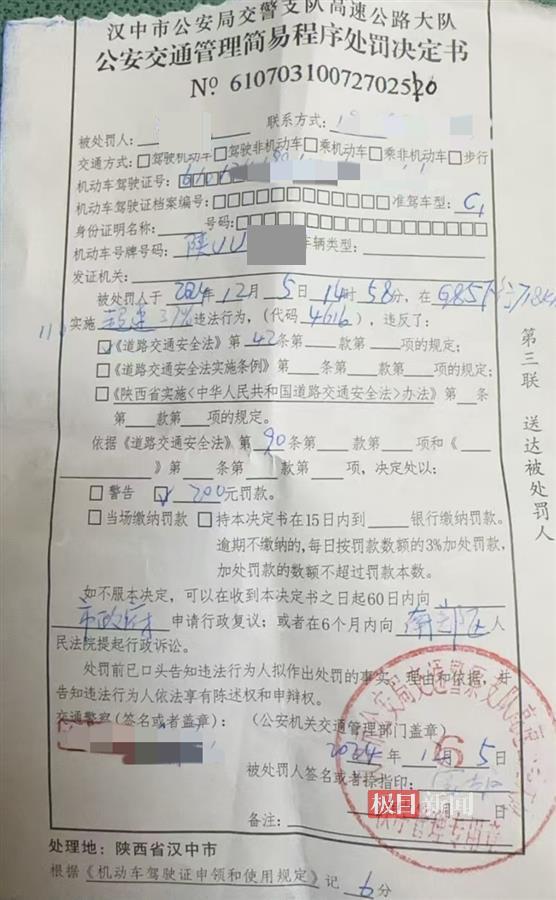 汉中市公安局交警支队高速公路大队
公安交通管理简易程序处罚决定书
№ 6107031007270252
被处罚人: 联系方式:
交通方式:□驾驶机动车□驾驶非机动车□乘机动车□乘非机动车□步行
机动车驾驶证号:
机动车驾驶证档案编号: 准驾车型: C1
身份证明名称: 号码:
机动车号牌号码: 陕UU 车辆类型:
发证机关:
被处罚人于 2024年12月5日14时58分,在G85
实施 超速37% 违法行为,(代码 4616),违反了:
☑《道路交通安全法》第42条第 款第 项的规定;
□《道路交通安全法实施条例》第 条第 款第 项的规定;
□《陕西省实施〈中华人民共和国道路交通安全法〉办法》第 条
第 款第 项的规定。
依据《道路交通安全法》第90条第 款第 项和《
》第 条第 款第 项,决定处以:
□警告 ☑ 200元罚款。
□当场缴纳罚款 □持本决定书在15日内到 银行缴纳罚款。
逾期不缴纳的,每日按罚款数额的3%加处罚款,
加处罚款的数额不超过罚款本数。
如不服本决定,可以在收到本决定书之日起60日内向
市政府 申请行政复议;或者在6个月内向 南郑区 人
民法院提起行政诉讼。
处罚前已口头告知违法行为人拟作出处罚的事实、理由和依据,并
告知违法行为人依法享有陈述权和申辩权。
交通警察(签名或者盖章): (公安机关交通管理部门盖章)
2024年12月5日
被处罚人签名或者捺指印:
备注: 月 日
处理地:陕西省汉中市
根据《机动车驾驶证申领和使用规定》记 6 分
第三联 送达被处罚人
极目新闻
6